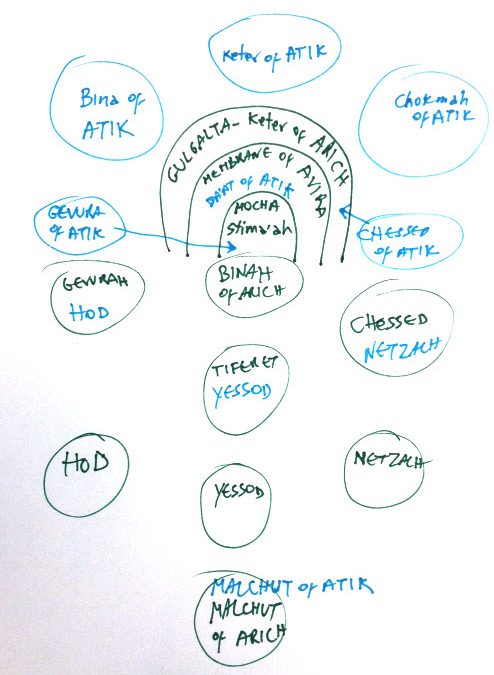 Keter of ATIK
Bina of
ATIK
Chokmah
of ATIK
GULGALTA - Keter of ARICH
MEMBRANE of AVIRA
DA'AT of ATIK
MOCHA
Stima'ah
GEVURA
of ATIK
CHESSED
of ATIK
GEVURAH
HOD
BINAH
OF ARICH
CHESSED
NETZACH
TIFERET
YESSOD
HOD
YESSOD
NETZACH
MALCHUT of ATIK
MALCHUT
of ARICH